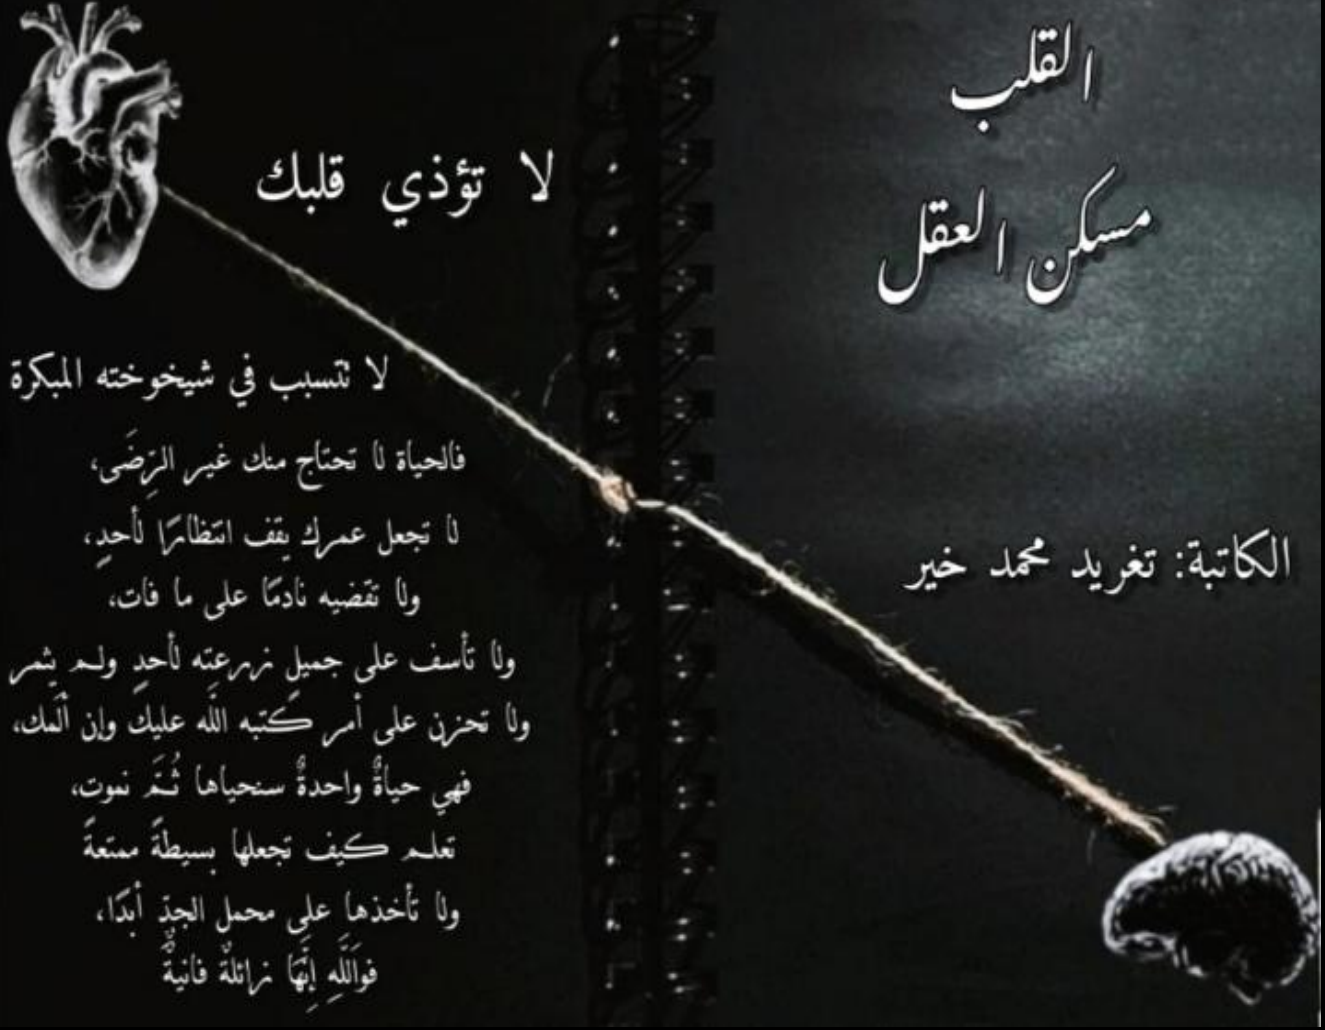 القلب
مسكن العقل
الكاتبة: تغريد محمد خير
لا تؤذي قلبك
لا تتسبب في شيخوخته المبكرة
فالحياة لا تحتاج منك غير الرِّضَى،
لا تجعل عمرك يقف انتظارًا لأحدٍ،
ولا تقضيه نادمًا على ما فات،
ولا تأسف على جميلٍ زرعته لأحدٍ ولم يثمر
ولا تحزن على أمر كتبه الله عليك وإن ألمك،
فهي حياةٌ واحدةٌ سنحياها ثُمَّ نموت،
تعلم كيف تجعلها بسيطةً ممتعةً
ولا تأخذها على محمل الجدِّ أبدًا،
فواَللَّهِ إِنَّهَا زائلةٌ فانيةٌ